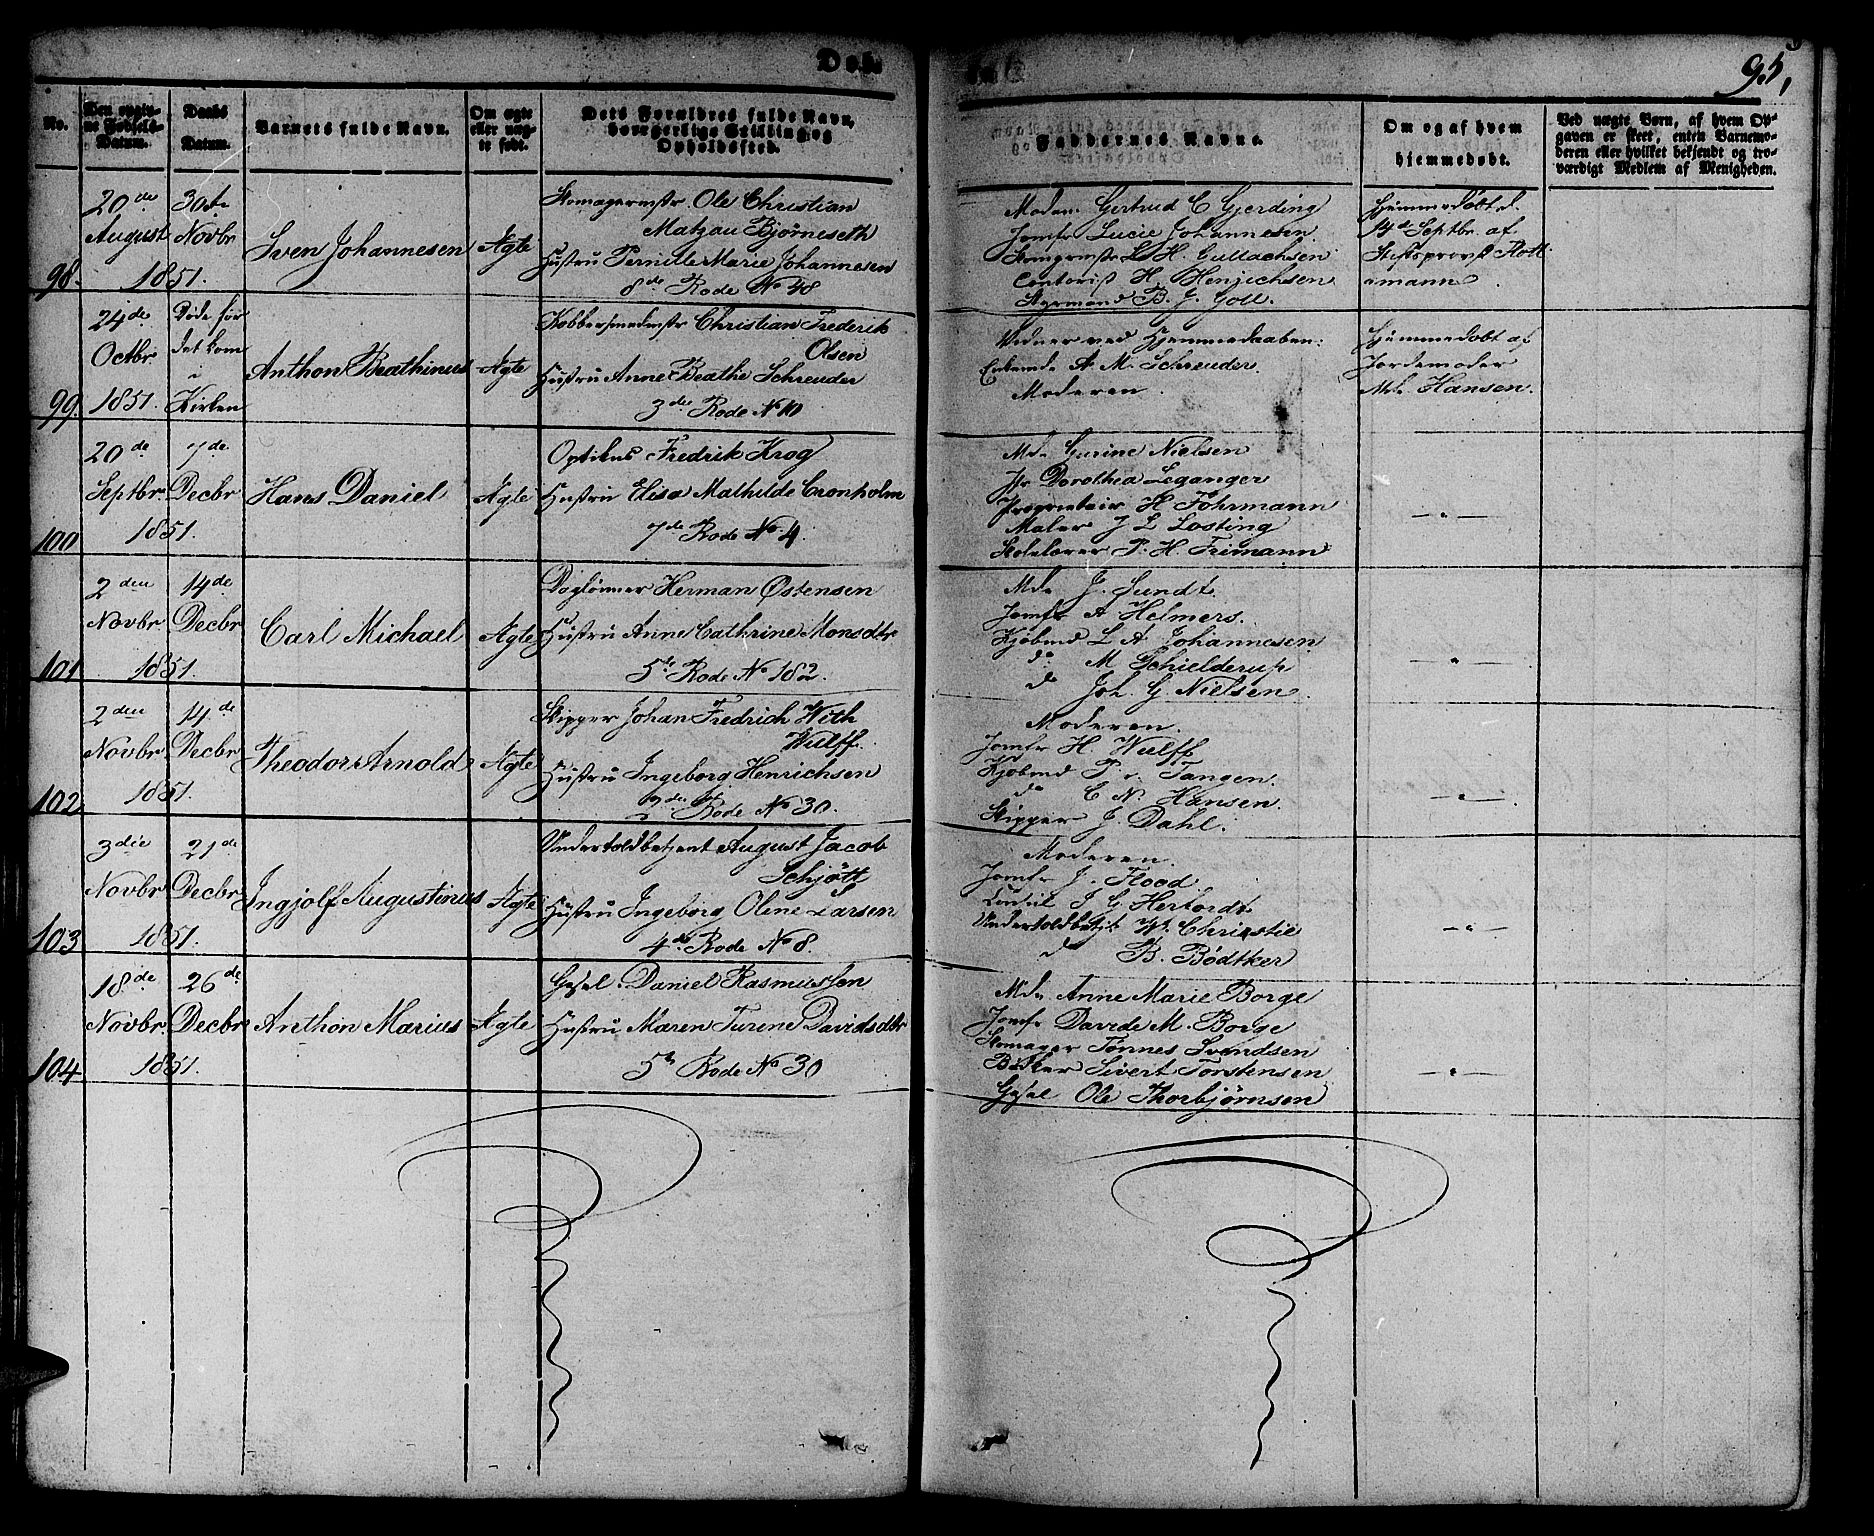 Dø
95,
No.
Den opgiv-
ne Fødsels-
Datum.
Daabs
Datum.
Barnets fulde Navn.
Om ægte
eller uæg-
te født.
Dets Forældres fulde Navn,
borgerlige Stilling og
Opholdssted.
Faddernes Navne.
Om og af hvem
hjemmedøbt.
Ved uægte Børn, af hvem Op-
gaven er skeet, enten Barnemo-
deren eller hvilket bekjendt og tro-
værdigt Medlem af Menigheden.
98.
20de
August
30te
Novbr
1851.
Sven Johannesen
Ægte
Skomagermstr. Ole Christian
Matzau Bjørneseth
Hustru Pernille Marie Johannesen
8de Rode No 48
Madm. Gertrud C Gjerding
Jomfr Lucie Johannesen
L. H. Gullachsen
Contorist H. Henrichsen
Styrmand B. J. Goll.
Hjemmedøbt d.
14de Septbr. af
Stiftsprovst
99.
24de
Octbr
1851.
Døde før
det kom
i
Kirken
Anthon Beathinus
Ægte
Kobbersmedmstr Christian Frederik
Olsen
Hustru Anne Beathe Schreuder
3de Rode No 10
Vidner ved Hjemmedaaben:
Enkemde A. M. Schreuder
Moderen.
Hjemmedøbt af
Jordemoder
Md. Hansen.
100
20de
Septbr
7de
Decbr
1851.
Hans Daniel
Ægte
Optikus Fredrik Krog
Hustru Elisa Mathilde Cronholm
7de Rode No 4
Md. Gurine Nielsen
Jfr Dorothea Leganger
Proprietair H Føhrmann
Maler J L Losting
Skolelærer P. H. Frimann
— " —
101
2den
Novbr
14de
Decbr
1851.
Carl Michael
Ægte
Dagleønner Herman Østensen
Hustru Anne Cathrine Monsdtr
5te Rode No 182.
Md. J. Sundt
Jomfr A Helmers.
Kjøbmd L A Johannesen
do M Schielderup
do Joh. G Nielsen.
— " —
102
2den
Novbr
14de
Decbr
1851.
Theodor Arnold
Ægte
Skipper Johan Fredrich With
Wulff.
Hustru Ingeborg Henrichsen
Rode No 30.
Moderen.
Jomfr H. Wulff
Kjøbmd P. v. Tangen.
do C N. Hansen
Skipper J. Dahl.
— " —
103
3die
Novbr
21de
Decbr
1851.
Ingjolf Augustinus
Ægte
Undertoldbetjent August Jacob
Schjøtt
Hustru Ingeborg Oline Larsen
4de Rode No 8.
Moderen.
Jomfr J. Flood
J G Hertordt
Undertoldbetjt W. Christie
do B. Bødtker
— " —
104
18de
Novbr
26de
Decbr
1851.
Anthon Marius
Ægte
Gesel. Daniel Rasmussen
Hustru Maren Turine Davidsdtr
5te Rode No 30
Md. Anne Marie Borge
Jomfr Davide M. Borge
Skomager Tønnes Svendsen
Bødker Sivert Torstensen
Gesel Ole Thorbjørnsen
— " —